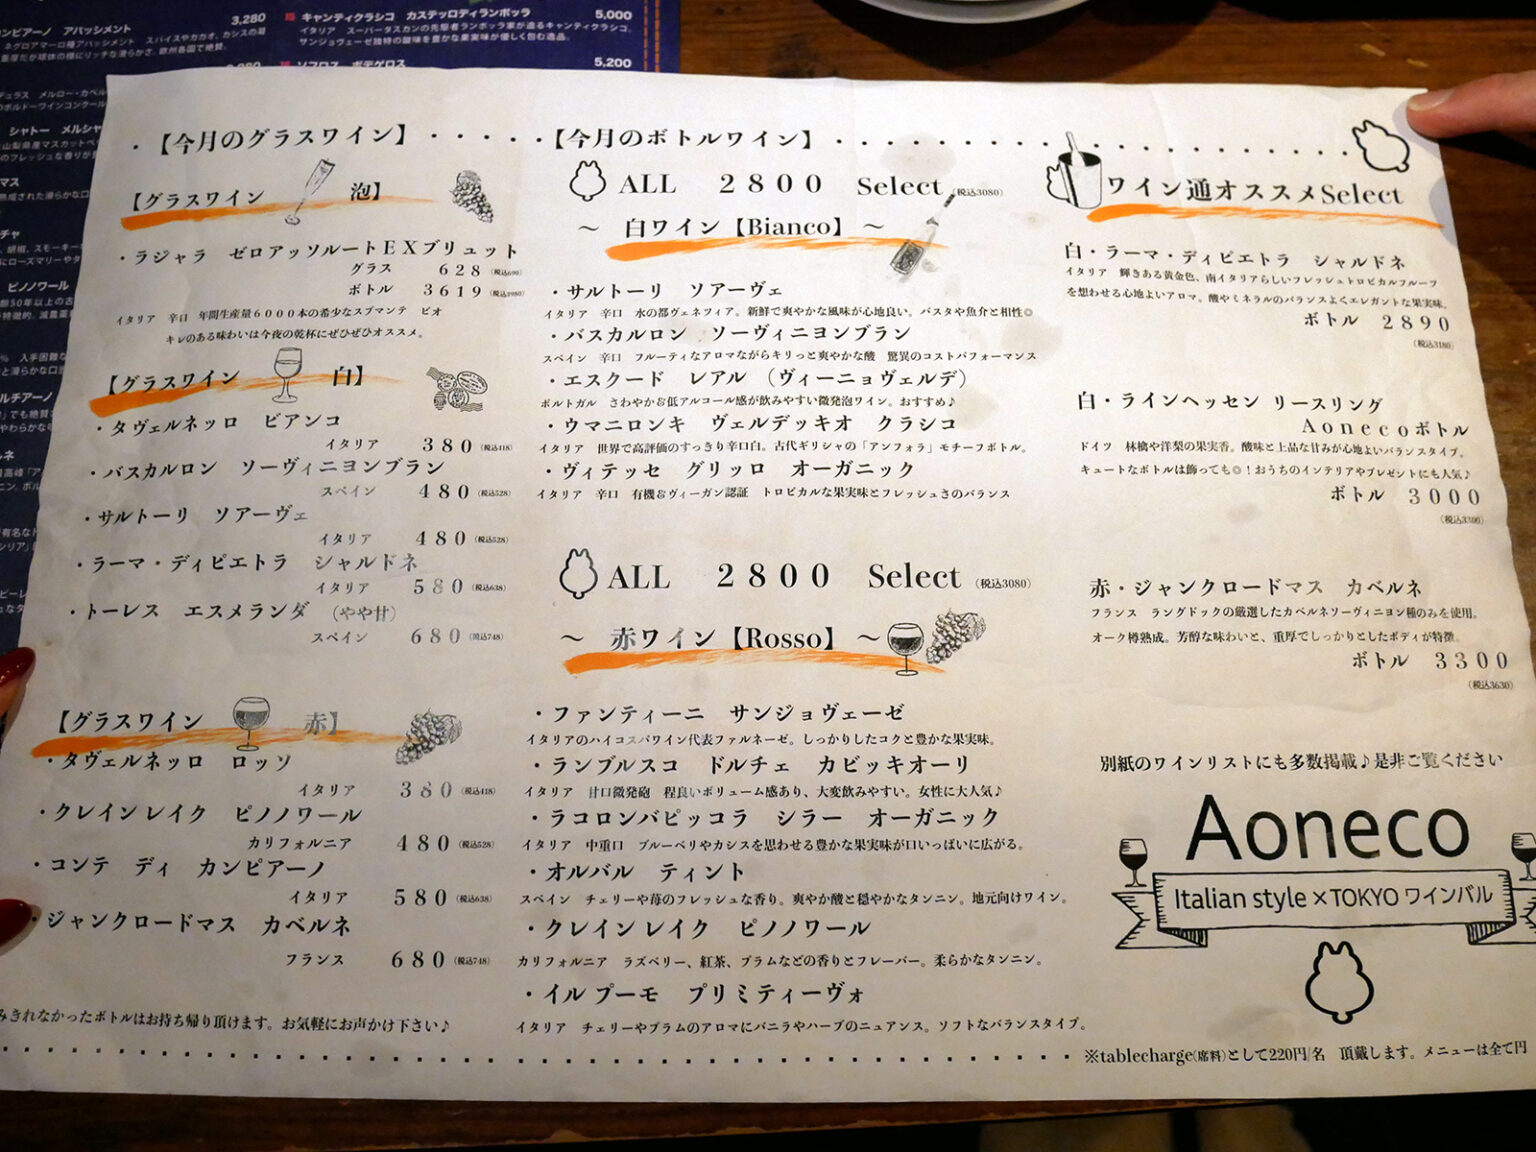 ンピアーノ　アパッシメント
3,280
15 キャンティクラシコ　カステッロディランポッラ
5,000
イタリア　スーパータスカンの先駆者ランポッラ家が造るキャンティクラシコ。
サンジョヴェーゼ独特の酸味を豊かな果実味が優しく包む逸品。
5,200
シャトー　メルシャ
ピノノワール
・【今月のグラスワイン】・・・・・
【グラスワイン　泡】
・ラジャラ　ゼロアッソルートEXブリュット
グラス　628（税込690）
ボトル　3619（税込3980）
イタリア　辛口　年間生産量6000本の希少なスプマンテ　ビオ
キレのある味わいは今夜の乾杯にぜひぜひオススメ。
【グラスワイン　白】
・タヴェルネッロ　ビアンコ
イタリア　380（税込418）
・バスカルロン　ソーヴィニヨンブラン
スペイン　480（税込528）
・サルトーリ　ソアーヴェ
イタリア　480（税込528）
・ラーマ・ディピエトラ　シャルドネ
イタリア　580（税込638）
・トーレス　エスメランダ　（やや甘）
スペイン　680（税込748）
【グラスワイン　赤】
・タヴェルネッロ　ロッソ
イタリア　380（税込418）
・クレインレイク　ピノノワール
カリフォルニア　480（税込528）
・コンテ　ディ　カンピアーノ
イタリア　580（税込638）
・ジャンクロードマス　カベルネ
フランス　680（税込748）
みきれなかったボトルはお持ち帰り頂けます。お気軽にお声かけ下さい♪
【今月のボトルワイン】
ALL　2800　Select（税込3080）
～　白ワイン【Bianco】　～
・サルトーリ　ソアーヴェ
イタリア　辛口　水の都ヴェネフィア。新鮮で爽やかな風味が心地良い。パスタや魚介と相性◎
・バスカルロン　ソーヴィニヨンブラン
スペイン　辛口　フルーティなアロマながらキリっと爽やかな酸　驚異のコストパフォーマンス
・エスクード　レアル　（ヴィーニョヴェルデ）
ポルトガル　さわやか&低アルコール感が飲みやすい微発泡ワイン。おすすめ♪
・ウマニロンキ　ヴェルデッキオ　クラシコ
イタリア　世界で高評価のすっきり辛口白。古代ギリシャの「アンフォラ」モチーフボトル。
・ヴィテッセ　グリッロ　オーガニック
イタリア　辛口　有機&ヴィーガン認証　トロピカルな果実味とフレッシュさのバランス
ALL　2800　Select（税込3080）
～　赤ワイン【Rosso】　～
・ファンティーニ　サンジョヴェーゼ
イタリアのハイコスパワイン代表ファルネーゼ。しっかりしたコクと豊かな果実味。
・ランブルスコ　ドルチェ　カビッキオーリ
イタリア　甘口微発砲　程良いボリューム感あり、大変飲みやすい。女性に大人気♪
・ラコロンバピッコラ　シラー　オーガニック
イタリア　中重口　ブルーベリやカシスを思わせる豊かな果実味が口いっぱいに広がる。
・オルバル　ティント
スペイン　チェリーや苺のフレッシュな香り。爽やか酸と穏やかなタンニン。地元向けワイン。
・クレインレイク　ピノノワール
カリフォルニア　ラズベリー、紅茶、プラムなどの香りとフレーバー。柔らかなタンニン。
・イル プーモ　プリミティーヴォ
イタリア　チェリーやプラムのアロマにバニラやハーブのニュアンス。ソフトなバランスタイプ。
ワイン通オススメSelect
白・ラーマ・ディピエトラ　シャルドネ
イタリア　輝きある黄金色、南イタリアらしいフレッシュトロピカルフルーツ
を想わせる心地よいアロマ。酸やミネラルのバランスよくエレガントな果実味。
ボトル　2890
（税込3180）
白・ラインヘッセン リースリング
Aonecoボトル
ドイツ　林檎や洋梨の果実香。酸味と上品な甘みが心地よいバランスタイプ。
キュートなボトルは飾っても◎！おうちのインテリアやプレゼントにも人気♪
ボトル　3000
（税込3300）
赤・ジャンクロードマス　カベルネ
フランス　ラングドックの厳選したカベルネソーヴィニヨン種のみを使用。
オーク樽熟成。芳醇な味わいと、重厚でしっかりとしたボディが特徴。
ボトル　3300
（税込3630）
別紙のワインリストにも多数掲載♪是非ご覧ください
Aoneco
Italian style×TOKYO ワインバル
※tablecharge(席料)として220円/名　頂戴します。メニューは全て円